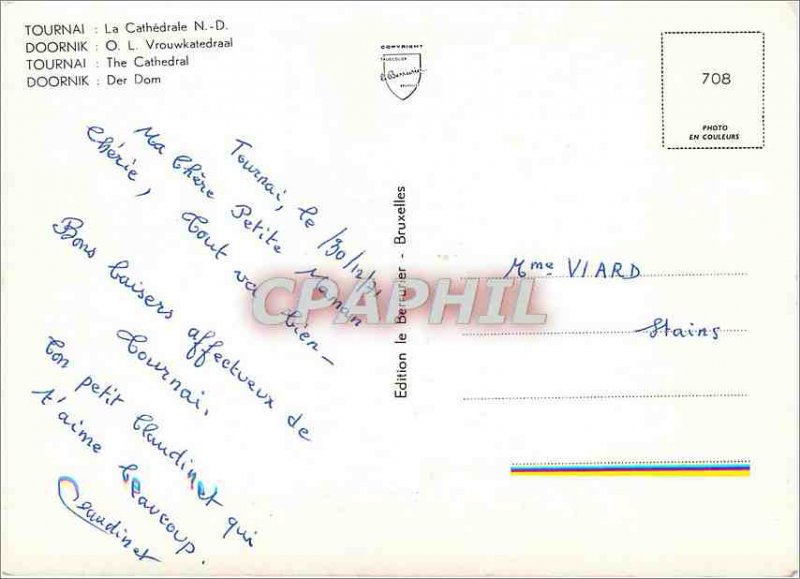 TOURNAI : La Cathédrale N.-D.
DOORNIK : O. L. Vrouwkatedraal
TOURNAI : The Cathedral
DOORNIK : Der Dom
COPYRIGHT
le Berrurier
708
PHOTO
EN COULEURS
Tournai, le /30/12/71
Ma Chère Petite Maman
Chérie, Tout va bien -
Bons baisers affectueux de
Tournai.
Ton petit Claudinet qui
t'aime beaucoup.
Claudinet
Edition le Berrurier - Bruxelles
CPAPHIL
Mme VIARD
Stains